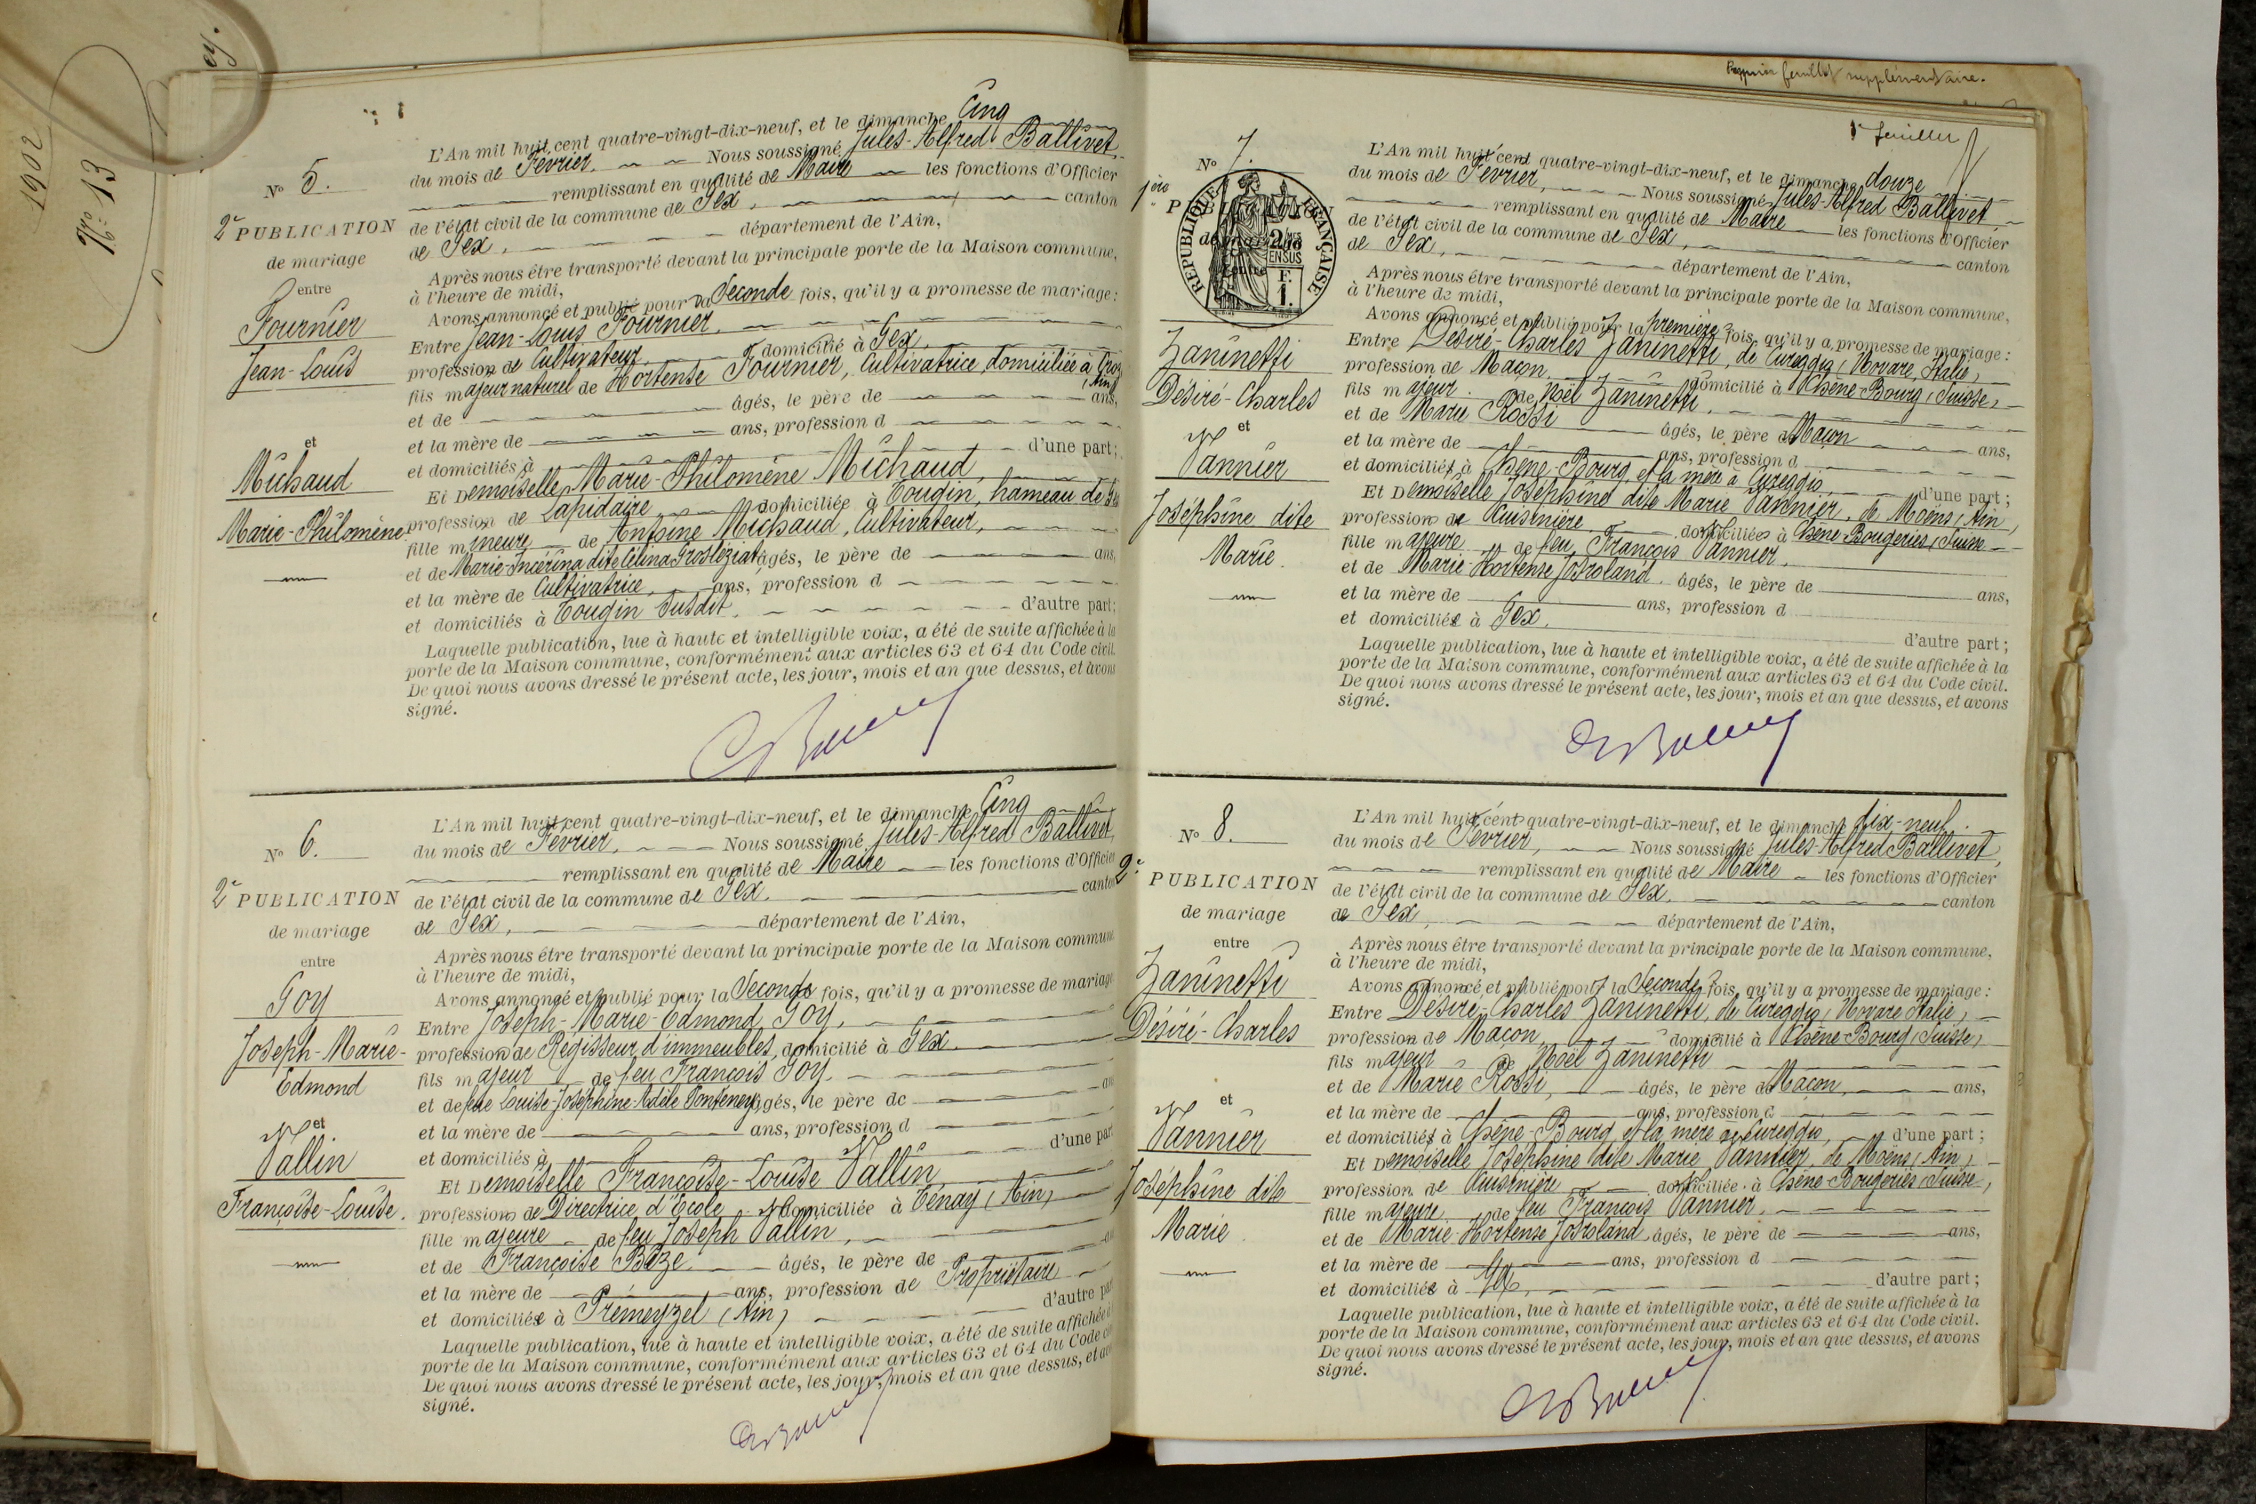 1902
N° 13
N° 5.
2e PUBLICATION
de mariage
entre
Fournier
Jean-Louis
et
Michaud
Marie-Philomène
L'An mil huit cent quatre-vingt-dix-neuf, et le dimanche Cinq
du mois de Février. Nous soussigné Jules-Alfred Ballivet,
remplissant en qualité de Maire les fonctions d'Officier
de l'état civil de la commune de Gex, canton
de Gex, département de l'Ain,
Après nous être transporté devant la principale porte de la Maison commune,
à l'heure de midi,
Avons annoncé et publié pour la Seconde fois, qu'il y a promesse de mariage :
Entre Jean-Louis Fournier.
profession de Cultivateur, domicilié à Gex,
fils majeur naturel de Hortense Fournier, Cultivatrice domiciliée à
et de âgés, le père de ans,
et la mère de ans, profession d
et domiciliés à d'une part ;
Et Demoiselle Marie-Philomène Michaud,
profession de Lapidaire domiciliée à Tougin, hameau de
fille mineure de Antoine Michaud, Cultivateur,
et de Marie- dite Célina âgés, le père de ans,
et la mère de Cultivatrice, ans, profession d
et domiciliés à Tougin susdit. d'autre part ;
Laquelle publication, lue à haute et intelligible voix, a été de suite affichée à la
porte de la Maison commune, conformément aux articles 63 et 64 du Code civil.
De quoi nous avons dressé le présent acte, les jour, mois et an que dessus, et avons
signé.
N° 6.
2e PUBLICATION
de mariage
entre
Goy
Joseph-Marie-
Edmond
et
Vallin
Françoise-Louise.
L'An mil huit cent quatre-vingt-dix-neuf, et le dimanche Cinq
du mois de Février, Nous soussigné Jules-Alfred Ballivet,
remplissant en qualité de Maire les fonctions d'Officier
de l'état civil de la commune de Gex, canton
de Gex, département de l'Ain,
Après nous être transporté devant la principale porte de la Maison commune
à l'heure de midi,
Avons annoncé et publié pour la Seconde fois, qu'il y a promesse de mariage
Entre Joseph-Marie-Edmond Goy,
profession de Régisseur d'immeubles, domicilié à Gex
fils majeur de feu François Goy
et de feue Louise-Joséphine-Adèle Ponteney âgés, le père de
et la mère de ans, profession d
et domiciliés à d'une part
Et Demoiselle Françoise-Louise Vallin
profession de Directrice d'Ecole domiciliée à Tenay (Ain)
fille majeure de feu Joseph Vallin,
et de Françoise Baze âgés, le père de
et la mère de ans, profession de Propriétaire
et domiciliée à Prémeyzel (Ain) d'autre part
Laquelle publication, lue à haute et intelligible voix, a été de suite affichée à
porte de la Maison commune, conformément aux articles 63 et 64 du Code
De quoi nous avons dressé le présent acte, les jour, mois et an que dessus, et
signé.
feuillet supplémentaire.
feuillet
N° 7.
1ère PUBLICATION
RÉPUBLIQUE FRANÇAISE
F. 1.
Zaninetti
Désiré-Charles
et
Vannier
Joséphine dite
Marie.
L'An mil huit cent quatre-vingt-dix-neuf, et le dimanche douze
du mois de Février, Nous soussigné Jules-Alfred Ballivet,
remplissant en qualité de Maire les fonctions d'Officier
de l'état civil de la commune de Gex, canton
de Gex, département de l'Ain,
Après nous être transporté devant la principale porte de la Maison commune,
à l'heure de midi,
Avons annoncé et publié pour la première fois, qu'il y a promesse de mariage :
Entre Désiré-Charles Zaninetti, de Cureggio (Novare, Italie),
profession de Maçon domicilié à Chêne-Bourg (Suisse)
fils majeur de Noël Zaninetti.
et de Marie Rossi âgés, le père de Maçon ans,
et la mère de ans, profession d
et domiciliés à Chêne-Bourg et la mère à Cureggio d'une part ;
Et Demoiselle Joséphine dite Marie Vannier, de Moëns (Ain)
profession de Cuisinière domiciliée à Chêne-Bougeries (Suisse
fille majeure de feu François Vannier,
et de Marie-Hortense Josroland, âgés, le père de ans,
et la mère de ans, profession d
et domiciliée à Gex. d'autre part ;
Laquelle publication, lue à haute et intelligible voix, a été de suite affichée à la
porte de la Maison commune, conformément aux articles 63 et 64 du Code civil.
De quoi nous avons dressé le présent acte, les jour, mois et an que dessus, et avons
signé.
N° 8.
2e PUBLICATION
de mariage
entre
Zaninetti
Désiré-Charles
et
Vannier
Joséphine dite
Marie
L'An mil huit cent quatre-vingt-dix-neuf, et le dimanche dix-neuf
du mois de Février, Nous soussigné Jules-Alfred Ballivet,
remplissant en qualité de Maire les fonctions d'Officier
de l'état civil de la commune de Gex, canton
de Gex, département de l'Ain,
Après nous être transporté devant la principale porte de la Maison commune,
à l'heure de midi,
Avons annoncé et publié pour la Seconde fois, qu'il y a promesse de mariage :
Entre Désiré-Charles Zaninetti, de Cureggio (Novare Italie),
profession de Maçon domicilié à Chêne-Bourg (Suisse)
fils majeur de Noël Zaninetti
et de Marie Rossi, âgés, le père de Maçon, ans,
et la mère de ans, profession d
et domiciliés à Chêne-Bourg et la mère à Cureggio, d'une part ;
Et Demoiselle Joséphine dite Marie Vannier, de Moëns (Ain)
profession de Cuisinière domiciliée à Chêne-Bougeries (Suisse)
fille majeure de feu François Vannier,
et de Marie-Hortense Josroland, âgés, le père de ans,
et la mère de ans, profession d
et domiciliée à Gex, d'autre part ;
Laquelle publication, lue à haute et intelligible voix, a été de suite affichée à la
porte de la Maison commune, conformément aux articles 63 et 64 du Code civil.
De quoi nous avons dressé le présent acte, les jour, mois et an que dessus, et avons
signé.